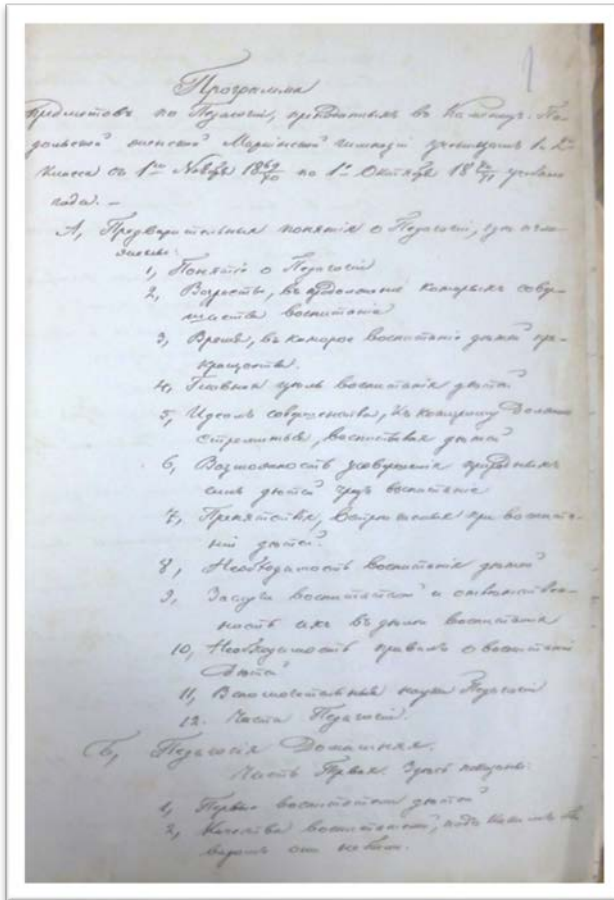 1
Программа
предметовъ по Педагогіи, преподанныхъ въ Каменецъ-По-
дольской женской Маріинской гимназіи ученицамъ 1 и 2го
класса съ 1го Ноября 1869/70 по 1е Октября 1870/71 учебно
года. —
А, Предварительныя понятія о Педагогіи, гдѣ изло-
жены:
1, Понятіе о Педагогіи
2, Возрасты, въ продолженіе которыхъ совер-
шается воспитаніе
3, Время, въ которое воспитаніе дѣтей пре-
кращается.
4, Главная цѣль воспитанія дѣтей.
5, Идеалъ совершенства, къ которому должно
стремиться, воспитывая дѣтей
6, Возможность усовершенія природныхъ
силъ дѣтей чрезъ воспитаніе
7, Препятствія, встрѣчаемыя при воспита-
ніи дѣтей.
8, Необходимость воспитанія дѣтей
9, Заслуги воспитателей и ответствен-
ность ихъ въ дѣлѣ воспитанія
10, Необходимость правилъ о воспитаніи
дѣтей
11, Вспомогательныя науки Педагогіи
12. Части Педагогіи.
Б, Педагогія Домашняя.
Часть Первая. Здѣсь показаны:
1, Первые воспитатели дѣтей
2, Качества воспитателей, подъ какимъ бы
видомъ они не были.